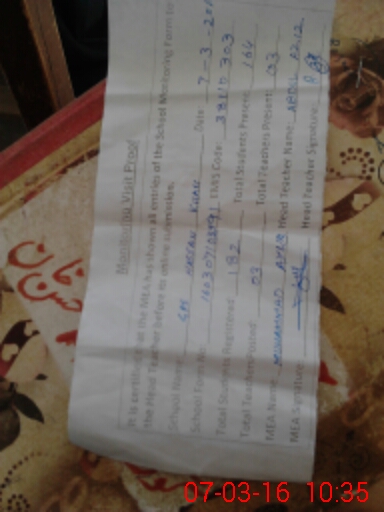 Monitoring Visit Proof
It is certified that the MEA has shown all entries of the School Monitoring Form to
the Head Teacher before its online submission.
School Name: GPS HASSAN KHAN Date: 7-3-201
School Form No. EMIS Code: 38110303
Total Students Registered 182 Total Students Present 164
Total Teachers Posted 03 Total Teachers Present: 03
MEA Name MUHAMMAD AYUB Head Teacher Name ABDUL AZIZ
MEA Signature Head Teacher Signature:
07-03-16 10:35